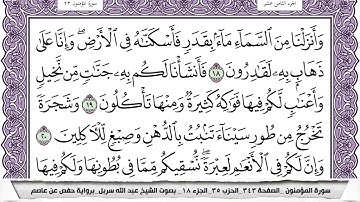 الجزء الثامن عشر سورة المؤمنون ٢٣
وَأَنزَلْنَا مِنَ ٱلسَّمَآءِ مَآءًۢ بِقَدَرٍ فَأَسْكَنَّٰهُ فِى ٱلْأَرْضِ ۖ وَإِنَّا عَلَىٰ
ذَهَابٍۭ بِهِۦ لَقَٰدِرُونَ ١٨ فَأَنشَأْنَا لَكُم بِهِۦ جَنَّٰتٍ مِّن نَّخِيلٍ
وَأَعْنَٰبٍ لَّكُمْ فِيهَا فَوَٰكِهُ كَثِيرَةٌ وَمِنْهَا تَأْكُلُونَ ١٩ وَشَجَرَةً
تَخْرُجُ مِن طُورِ سَيْنَآءَ تَنۢبُتُ بِٱلدُّهْنِ وَصِبْغٍ لِّلْءَاكِلِينَ ٢٠
وَإِنَّ لَكُمْ فِى ٱلْأَنْعَٰمِ لَعِبْرَةً ۖ نُّسْقِيكُم مِّمَّا فِى بُطُونِهَا وَلَكُمْ فِيهَا
سورة المؤمنون _ الصفحة ٣٤٣_ الحزب ٣٥_ الجزء ١٨_ بصوت الشيخ عبد الله سربل_ برواية حفص عن عاصم